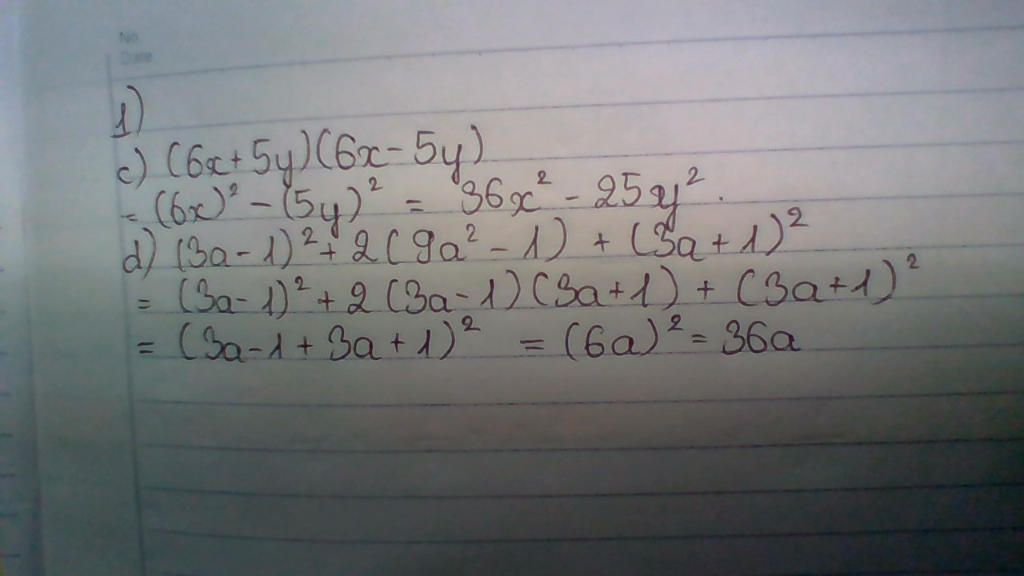 No.
Date
1)
c) (6x+5y)(6x-5y)
= (6x)² - (5y)² = 36x² - 25y².
d) (3a-1)² + 2(9a² - 1) + (3a+1)²
= (3a-1)² + 2(3a-1)(3a+1) + (3a+1)²
= (3a-1+3a+1)² = (6a)² = 36a